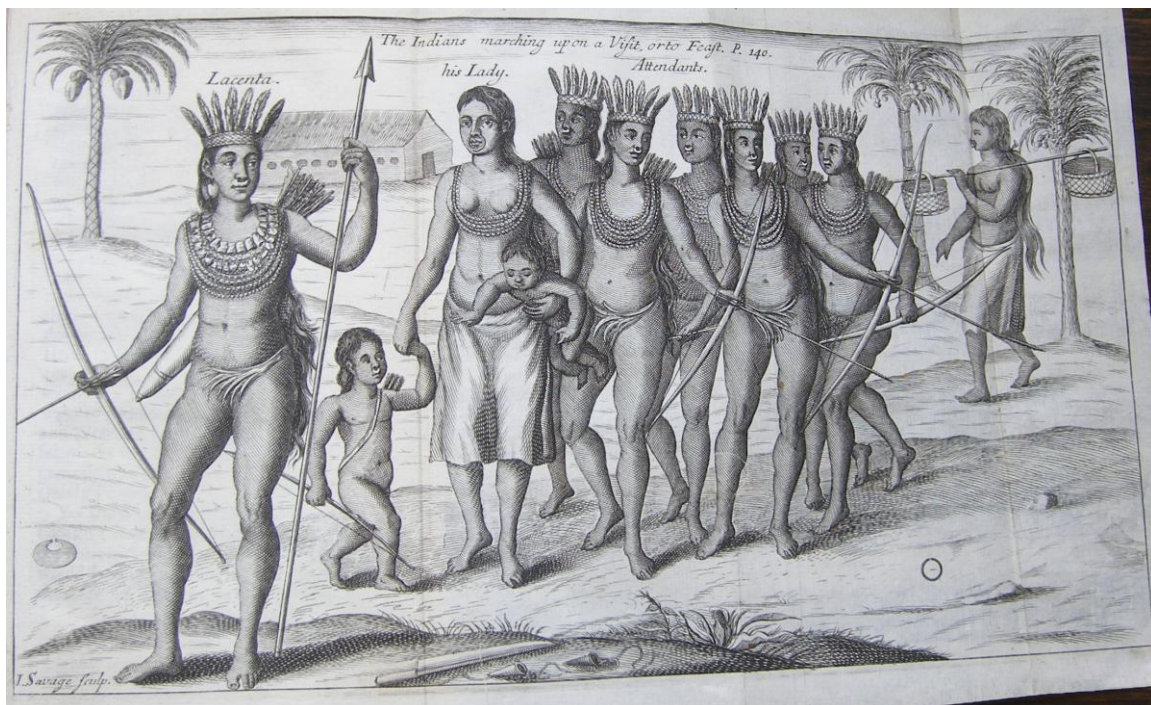 The Indians marching upon a Viſit, or to Feaſt. P. 140.
Lacenta.
his Lady.
Attendants.
I. Savage ſculp.